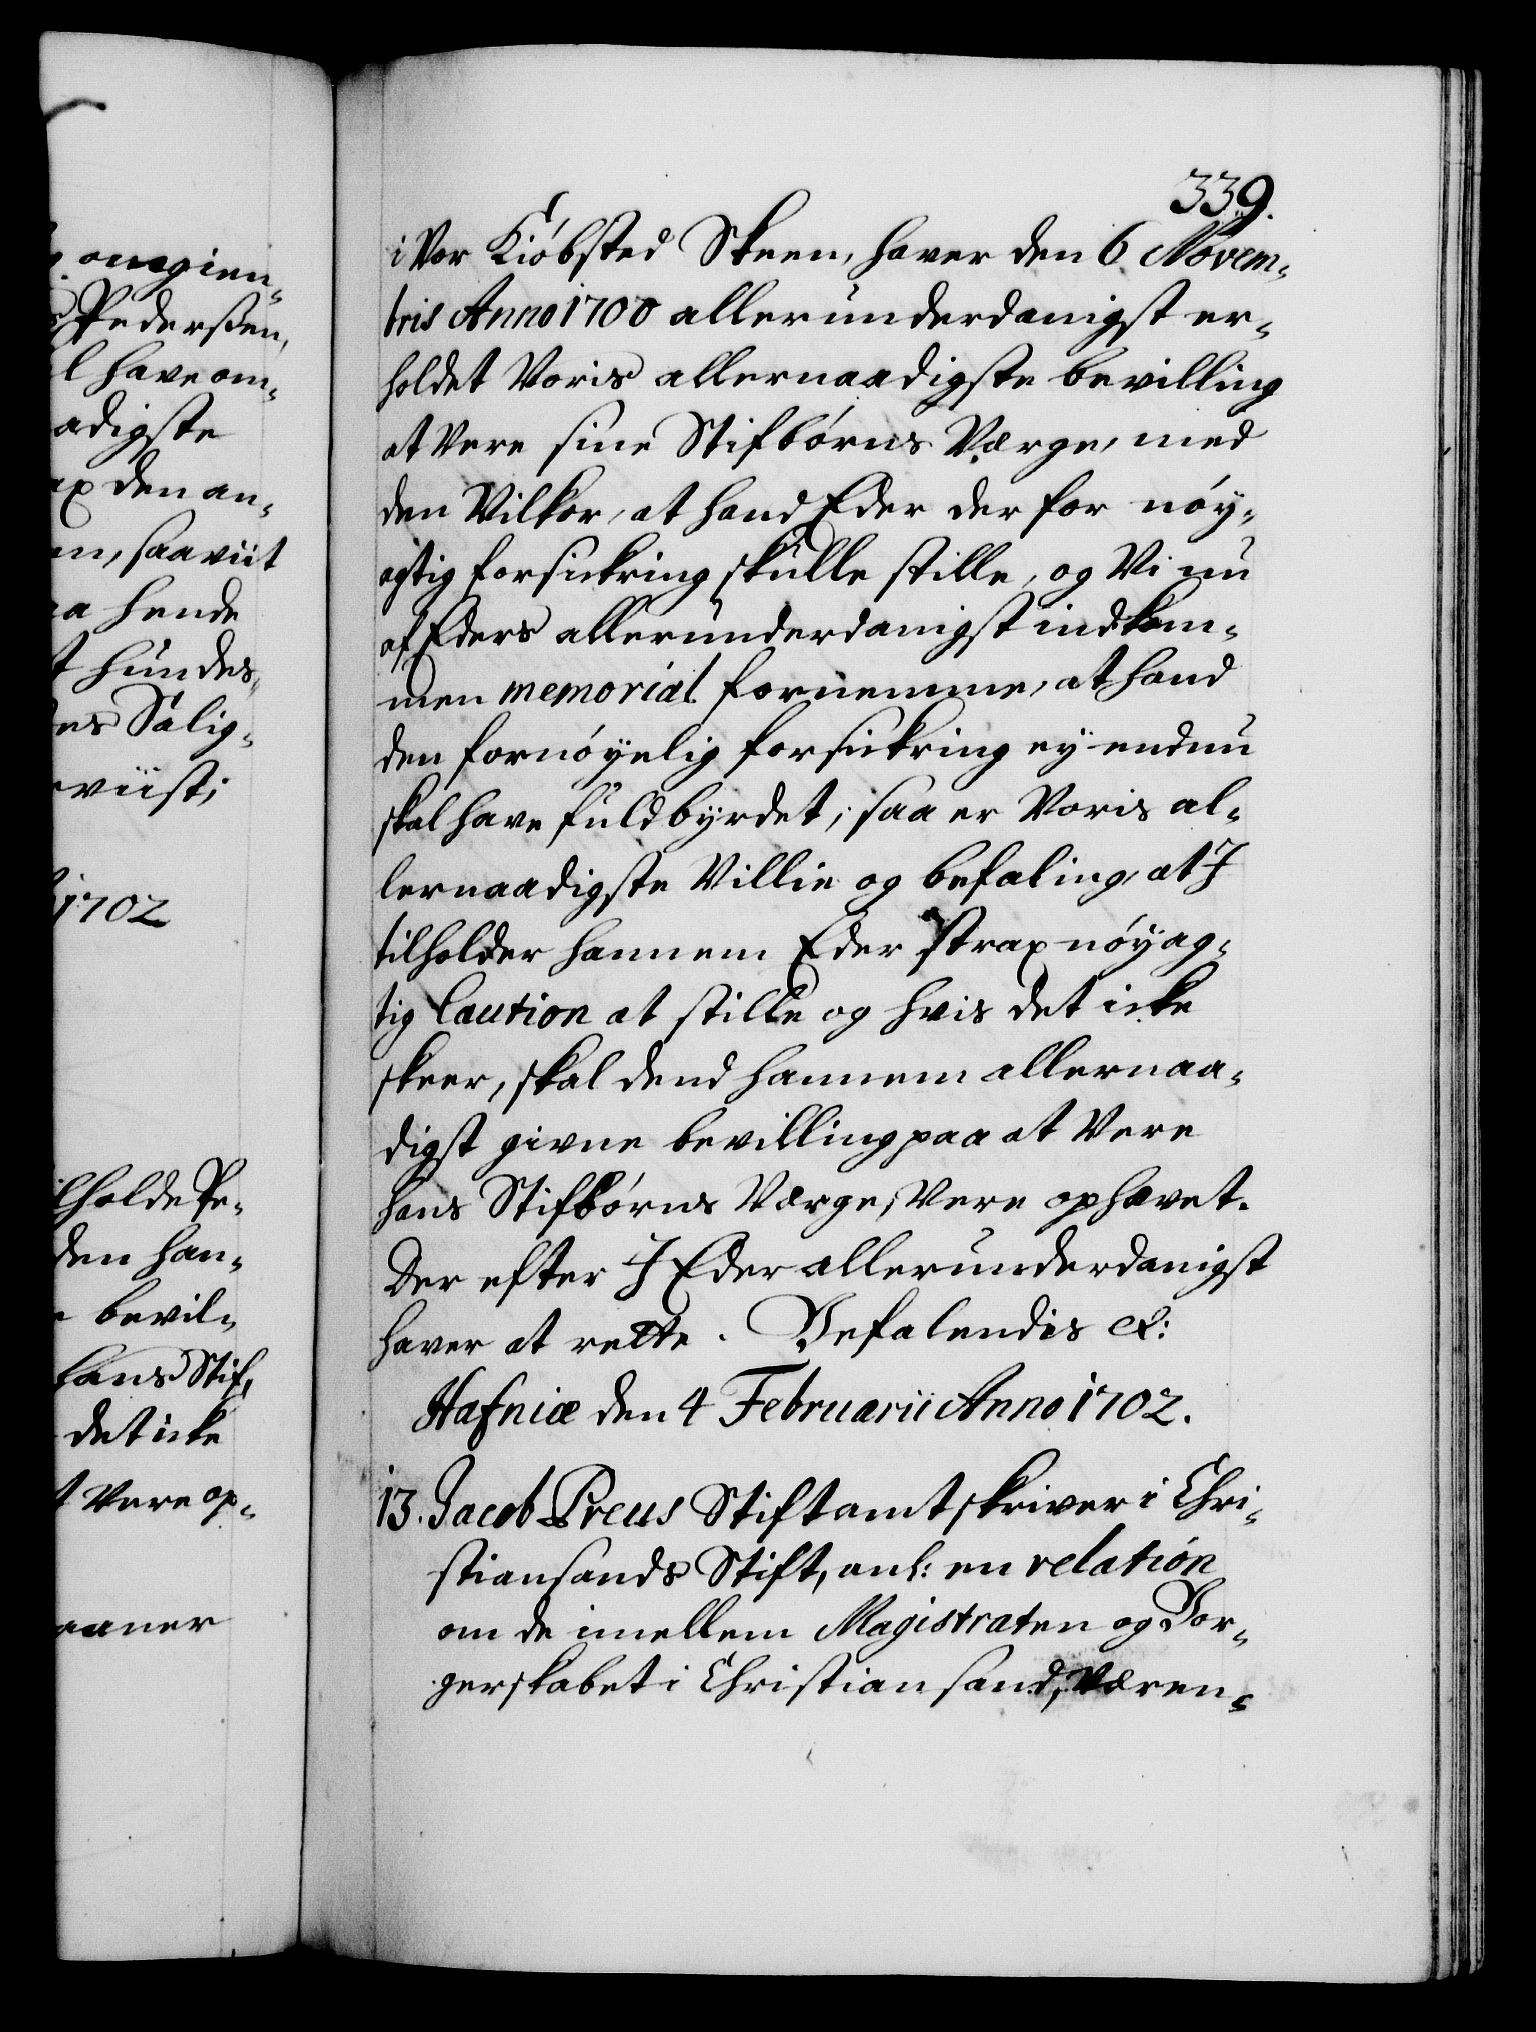 339.
i Vor Kiöbsted Skeen, haver den 6 Novem-
bris Anno 1700 allerunderdanigst er-
holdet Voris allernaadigste bevilling
at Vere sine Stifbörns Værge, med
den Vilkor, at hand Eder der for nöy-
agtig forsickring skulle stille, og Vi nu
af Eders allerunderdanigst indkom-
men memorial fornemme, at hand
den fornöyelig forsickring ey endnu
skal have fuldbyrdet; saa er Voris al-
lernaadigste Villie og befaling, at I
tilholder hannem Eder strax nöyag-
tig Caution at stille og hvis det icke
skeer, skal dend hannem allernaa-
digst givne bevilling paa at Vere
hans Stifbörns Værge, Vere ophævet.
Der efter I Eder allerunderdanigst
haver at rette. Befalendis etc:
Hafniæ den 4 Februarii Anno 1702.
13. Jacob Preus Stiftamtskriver i Chri-
stiansands Stift, anl: en relation
om de imellem Magistraten og Bor-
gerskabet i Christiansand, Væren-
angien-
Pedersen,
l have om-
adigste
ax den an-
en, saaviit
aa hende
t hundes-
des Salig-
viist;
1702
ilholde Pe-
den han-
bevil-
hans Stif-
det icke
t Vere op-
aaner